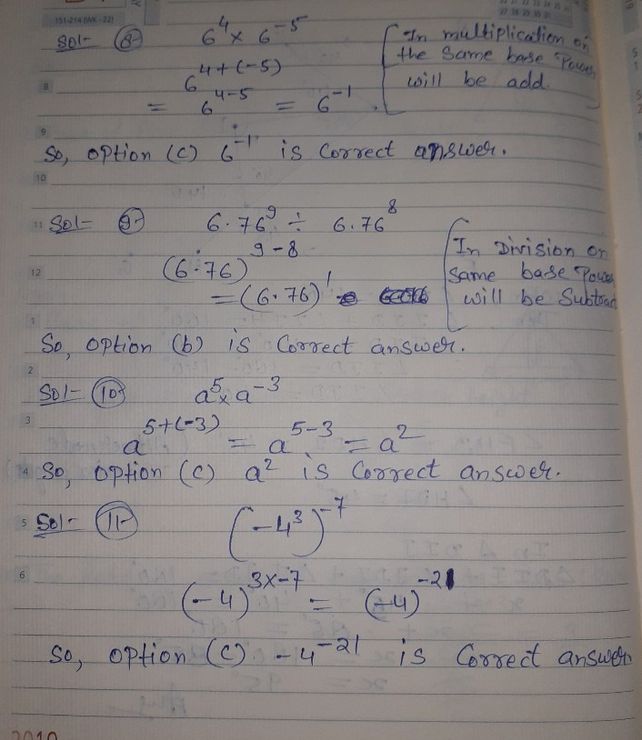 151-214 (WK - 22)
Sol- (8) 6^4 × 6^-5 [In multiplication on
the same base Power
will be add.]
6^4+(-5)
8
= 6^4-5 = 6^-1
9
So, option (c) 6^-1 is correct answer.
10
11 Sol- (9) 6.76^9 ÷ 6.76^8
(6.76)^9-8 [In Division on
same base Power
will be Subtract]
12
= (6.76)^1
1
So, option (b) is correct answer.
2
Sol- (10) a^5 × a^-3
3
a^5+(-3) = a^5-3 = a^2
4 So, option (c) a^2 is correct answer.
5 Sol- (11) (-4^3)^-7
6
(-4)^3×-7 = (-4)^-21
So, option (c) -4^-21 is correct answer
2019